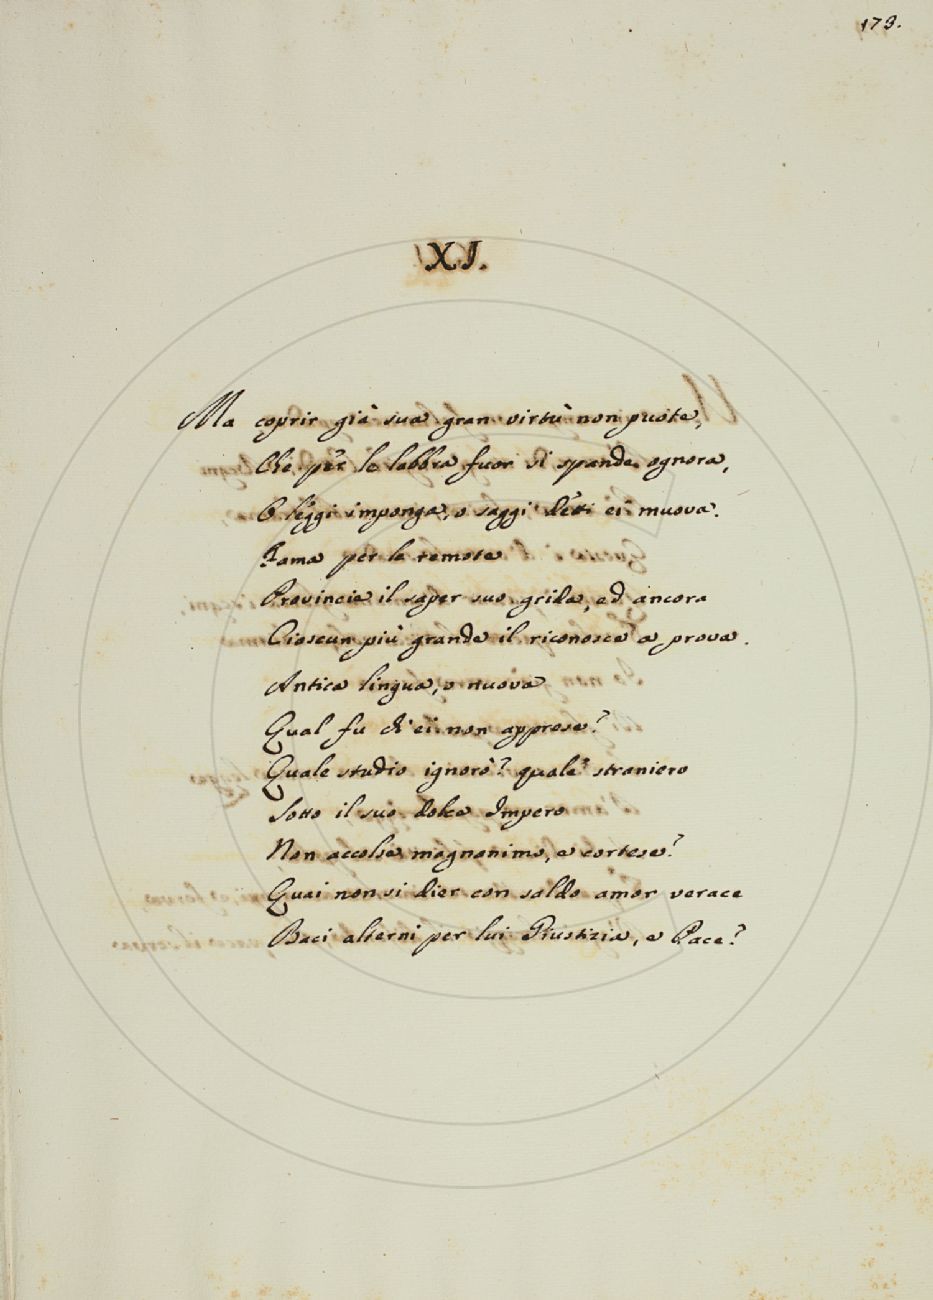 173.
XI.
Ma coprir già sua gran virtù non puote,
Che per le labbra fuor si spande ognora,
O leggi imponga, o saggi detti ei muova.
Fama per le remote
Provincie il saper suo grida, ed ancora
Ciascun più grande il riconosce a prova.
Antica lingua, o nuova
Qual fu ch'ei non apprese?
Quale studio ignorò? quale straniero
Sotto il suo dolce Impero
Non accolse magnanimo, e cortese?
Quai non si dier con saldo amor verace
Baci alterni per lui Giustizia, e Pace?